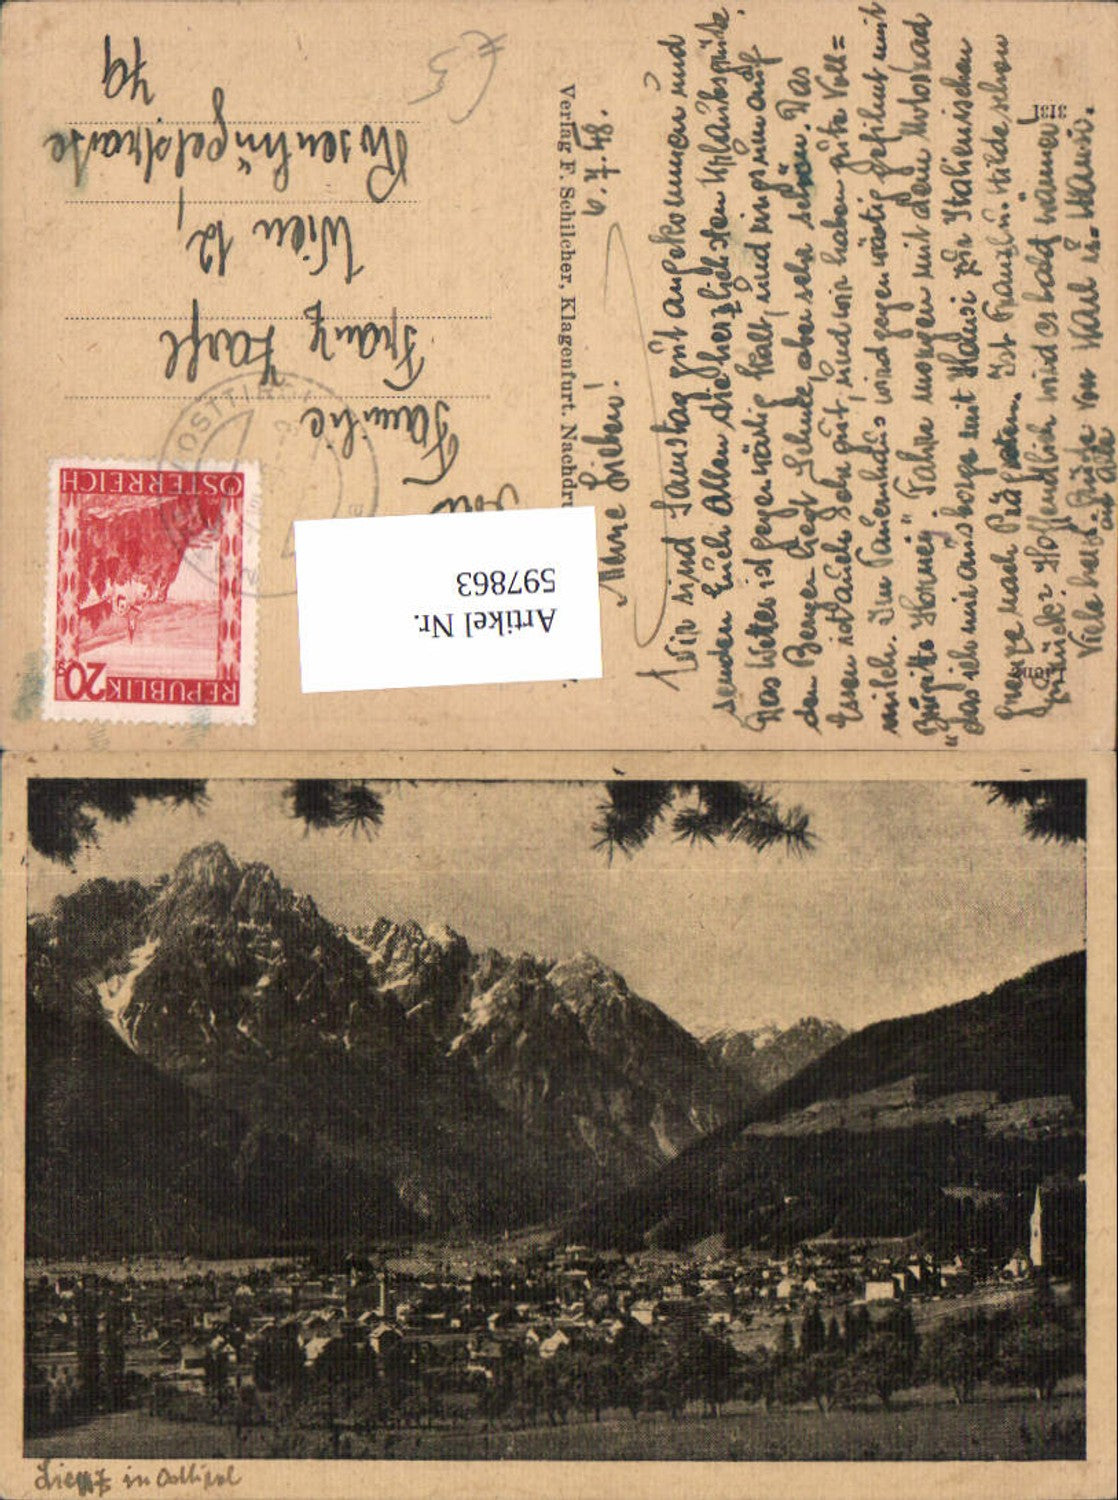 Meine Lieben!
9.4.48.
Wir sind Samstag gut angekommen und
senden Euch Allen die herzlichsten Urlaubsgrüße.
Das Wetter ist gegenwärtig kalt, und rings um auf
den Bergen liegt Schnee, aber sehr schön. Das
Essen ist auch sehr gut, und wir haben gute Voll=
milch. Im
wird gegenwärtig gefilmt mit
Fahre morgen mit dem Motorrad
das ich mir ausborge mit Hansi zur Italienischen
Grenze nach
Ist Franzl u. Hilde schon
zurück? Hoffentlich wird es bald wärmer
Viele herzl. Grüße von Karl u. Hansi.
an alle
Verlag F. Schilcher, Klagenfurt. Nachdru
3131
Familie
Franz
Wien 12,
Rosenhügelstrasse
79
REPUBLIK 20g
ÖSTERREICH
OSTTIROL
Artikel Nr.
597863
Lienz in Osttirol